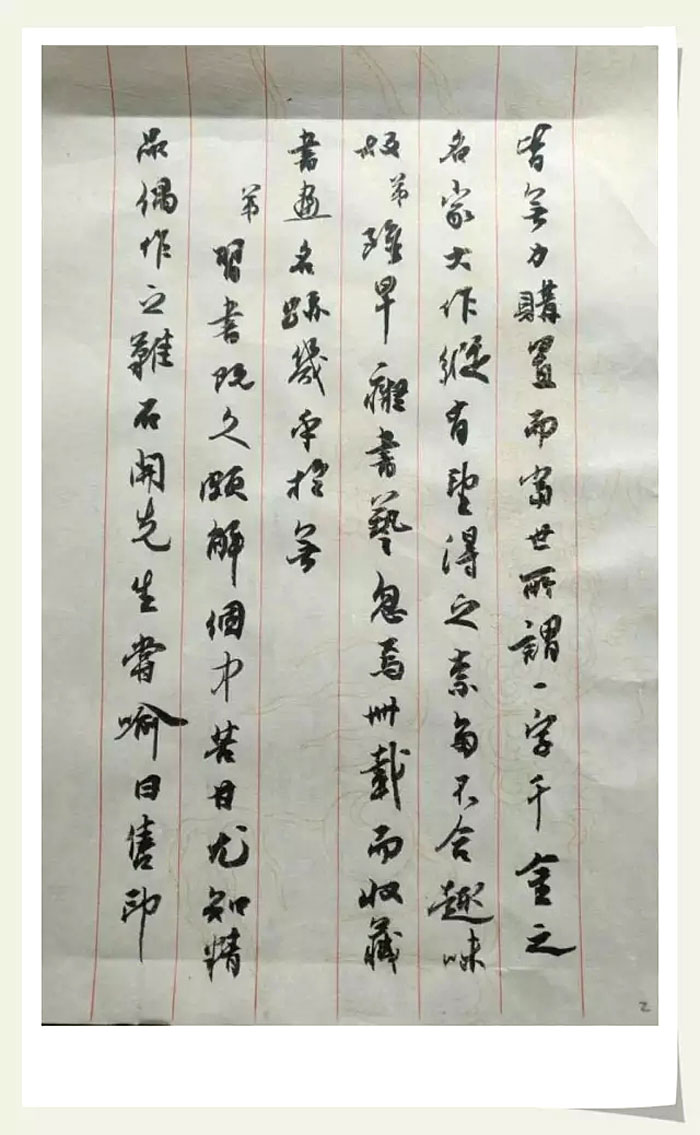 昔無力購置而當世所謂一字千金之
名家大作縱有望得之柰多不合趣味
故弟雖早癡書藝忽焉卅載而收藏
書畫名跡幾乎於無
弟習書既久頗解個中苦甘尤知精
品偶作之難石開先生嘗喻曰售印
2